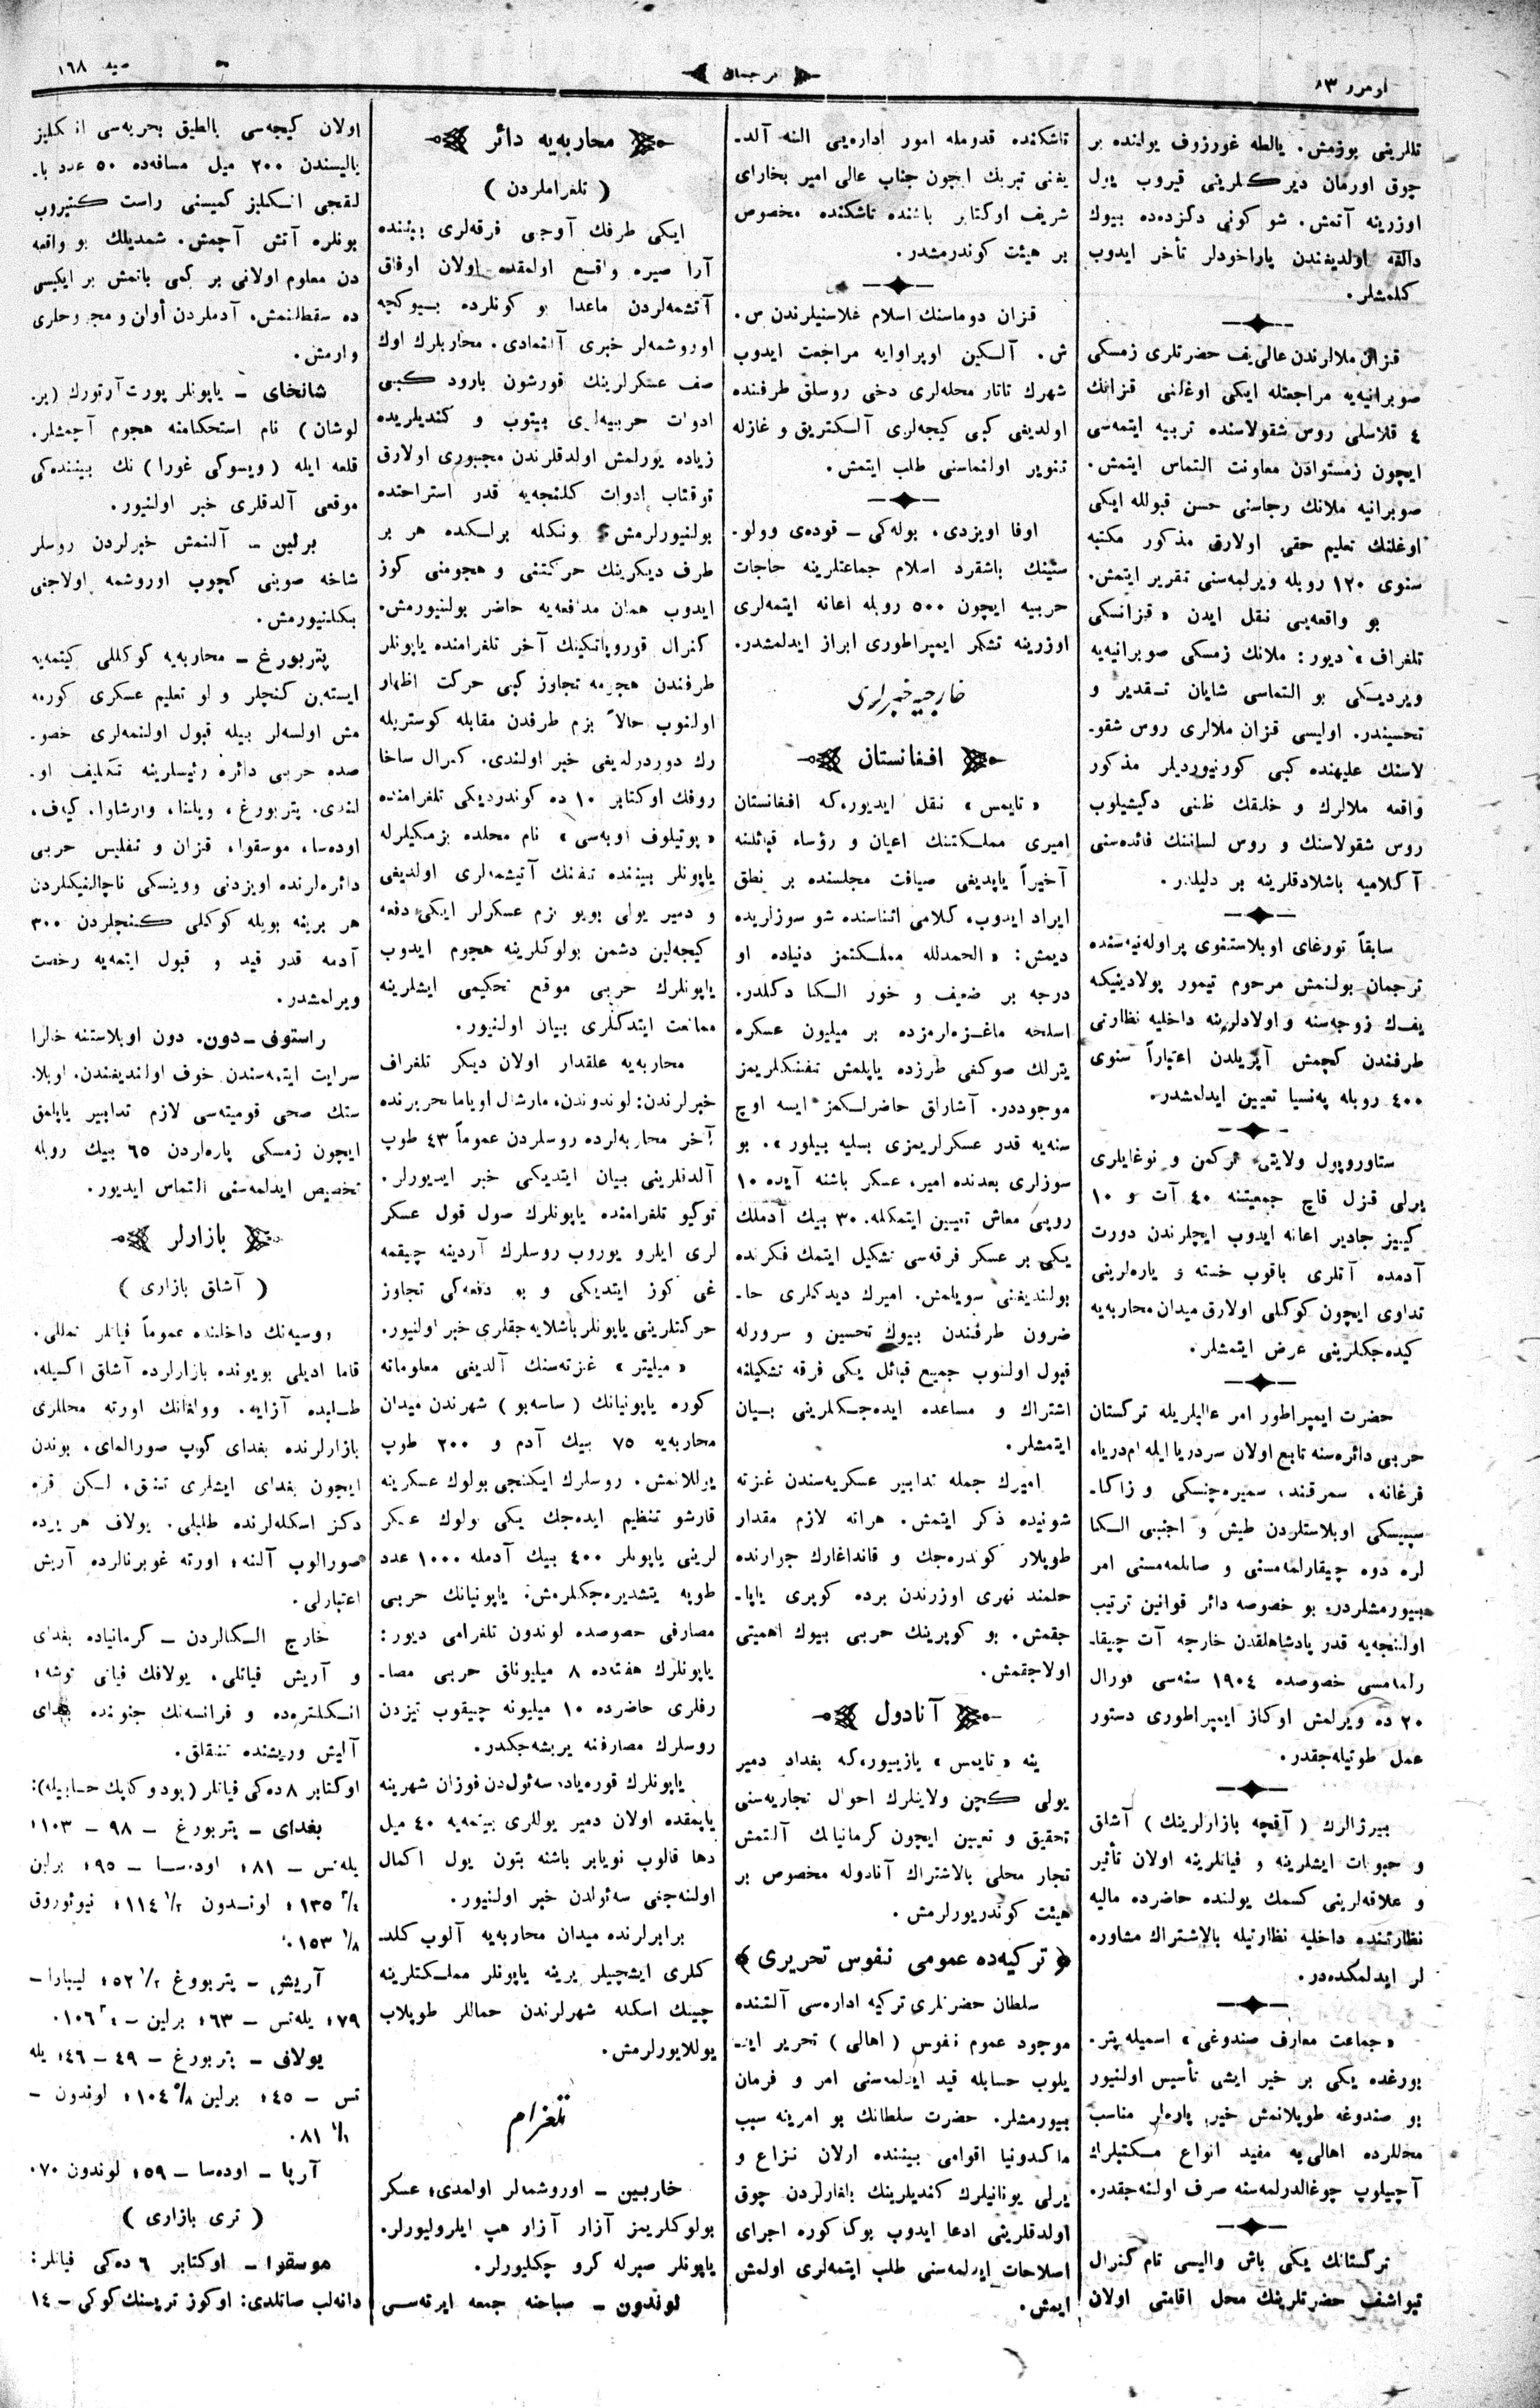 نومرو ٨٣
ترجمان
صحيفه ١٦٨
تللرينی بوزمش. يالطه غورزوف يولنده بر
چوق اورمان ديركلرينی قيروب يول
اوزرينه آتمش. شو كونی دكزده‌ده بيوك
دالغه اولديغندن پاراخودلر تأخر ايدوب
كلمشلر.
قزان ملالرندن عالی‌يف حضرتلری زمسكی
صوبرانيه‌يه مراجعتله ايكی اوغلنی قزانك
٤ قلاسلی روس شقولاسنده تربيه ايتمه‌سی
ايچون زمستوادن معاونت التماس ايتمش.
صوبرانيه ملانك رجاسنی حسن قبولله ايكی
اوغلنك تعليم حقی اولارق مذكور مكتبه
سنوی ١٢٠ روبله ويرلمه‌سنی تقرير ايتمش.
بو واقعه‌یی نقل ايدن « قزانسكی
تلغراف » ديور: ملانك زمسكی صوبرانيه‌يه
ويرديكی بو التماسی شايان تقدير و
تحسيندر. اوليسی قزان ملالری روس شقو-
لاسنك عليهنده كبی كورنيورديلر مذكور
واقعه ملالرك و خلقك ظنی دكيشيلوب
روس شقولاسنك و روس لساننك فائده‌سنی
آكلاميه باشلادقلرينه بر دليلدر.
سابقاً تورغای اوبلاستنوی پراوله‌نيه‌سنده
ترجمان بولنمش مرحوم تيمور پولادينيكه
يفك زوجه‌سنه و اولادلرينه داخليه نظارتی
طرفندن كچمش آپريلدن اعتباراً سنوی
٤٠٠ روبله په‌نسيا تعيين ايدلمشدر.
ستاوروپول ولايتی تركمن و نوغايلری
يرلی قزل قاچ جمعيتنه ٤٠ آت و ١٠
كييز چادير اعانه ايدوب ايچلرندن دورت
آدمده آتلری باقوب خسته و ياره‌لرينی
تداوی ايچون كوكللی اولارق ميدان محاربه‌يه
كيده‌جكلرينی عرض ايتمشلر.
حضرت ايمپراطور امر عاليلريله تركستان
حربی دائره‌سنه تابع اولان سردريا ايله ام‌درياه
فرغانه، سمرقند، سميره‌چنسكی و زاكا-
سپيسكی اوبلاستلردن طيش و اجنبی الكا
لره دوه چيقارلمه‌مسنی و صاتلمه‌مسنی امر
بيورمشلردر. بو خصوصه دائر قوانين ترتيب
اولنجه‌يه قدر پادشاهلقدن خارجه آت چيقا-
رلمامسی خصوصده ١٩٠٤ سنه‌سی فورال
٢٠ ده ويرلمش اوكاز ايمپراطوری دستور
عمل طوتيله‌جقدر.
بيرژالرك ( آقچه بازارلرينك ) آشلق
و حبوبات ايشلرينه و فيانلرينه اولان تأثير
و علاقه‌لرينی كسمك يولنده حاضرده ماليه
نظارتنده داخليه نظارتيله بالاشتراك مشاوره
لر ايدلمكده‌در.
« جماعت معارف صندوغی » اسميله پتر.
بورغده يكی بر خير ايشی تأسيس اولنيور
بو صندوغه طوپلانمش خير پاره‌لر مناسب
محللرده اهالی‌يه مفيد انواع مكتبلرك
آچيلوب چوغالدرلمه‌سنه صرف اولنه‌جقدر.
تركستانك يكی باش واليسی تام گنرال
تيواشف حضرتلرينك محل اقامتی اولان
تاشكنده قدومله امور اداره‌يی النه آلد-
يغنی تبريك ايچون جناب عالی امير بخارای
شريف اوكتابر باشنده تاشكنده مخصوص
بر هيئت كوندرمشدر.
قزان دوماسنك اسلام غلاسنيلرندن س.
ش. آلكين اوپراوايه مراجعت ايدوب
شهرك تاتار محله‌لری دخی روسلق طرفنده
اولديغی كبی كيجه‌لری آلكتريق و غازله
تنوير اولنماسنی طلب ايتمش.
اوفا اويزدی، بوله‌كی - قوده‌ی وولو-
ستينك باشقرد اسلام جماعتلرينه حاجات
حربيه ايچون ٥٠٠ روبله اعانه ايتمه‌لری
اوزرينه تشكر ايمپراطوری ابراز ايدلمشدر.
خارجيه خبرلری
افغانستان
« تايمس » نقل ايديوركه افغانستان
اميری مملكتنك اعيان و رؤساء قبائلنه
آخيراً ياپديغی ضيافت مجلسنده بر نطق
ايراد ايدوب، كلامی اثناسنده شو سوزلريده
ديمش: « الحمدلله مملكتمز دنياده او
درجه بر ضعيف و خور الكا دكلدر.
اسلحه ماغزه‌لرمزده بر ميليون عسكره
يترلك صوكغی طرزده ياپلمش تفنكلريمز
موجوددر. آشارلق حاضرلكمز ايسه اوچ
سنه‌يه قدر عسكرلريمزی بسليه بيلور ». بو
سوزلری بعدنده امير، عسكر باشنه آيده ١٠
روپيه معاش تعيين ايتمكله، ٣٠ بيك آدملك
يكی بر عسكر فرقه‌سی تشكيل ايتمك فكرنده
بولنديغنی سويلمش. اميرك ديدكلری حا-
ضرون طرفندن بيوك تحسين و سرورله
قبول اولنوب جميع قبائل يكی فرقه تشكيلنه
اشتراك و مساعده ايده‌جكلرينی بيان
ايتمشلر.
اميرك جمله تدابير عسكريه‌سندن غزته
شونيده ذكر ايتمش. هرانه لازم مقدار
طوپلار كوندره‌جك و قانداغارك جوارنده
حلمند نهری اوزرندن برده كوپری ياپا-
جقمش. بو كوپرينك حربی بيوك اهميتی
اولاجقمش.
آنادول
ينه « تايمس » يازييوركه بغداد دمير
يولی كچن ولايتلرك احوال تجاريه‌سنی
تحقيق و تعيين ايچون كرمانيالك آلتمش
تجار محلی بالاشتراك آنادوله مخصوص بر
هيئت كوندريورلرمش.
﴿ تركيه‌ده عمومی نفوس تحريری ﴾
سلطان حضرتلری تركيه اداره‌سی آلتنده
موجود عموم نفوس ( اهالی ) تحرير ايد-
يلوب حسابله قيد ايدلمه‌سنی امر و فرمان
بيورمشلر. حضرت سلطانك بو امرينه سبب
ماكدونيا اقوامی بيننده اولان نزاع و
يرلی يونانيلرك كنديلرينك بلغارلردن چوق
اولدقلرينی ادعا ايدوب بوكا كوره اجرای
اصلاحات ايدلمه‌سنی طلب ايتمه‌لری اولمش
ايمش.
محاربه‌يه دائر
( تلغراملردن )
ايكی طرفك آوجی فرقه‌لری بيننده
آرا صيره واقع اولمقده اولان اوفاق
آتشمه‌لردن ماعدا بو كونلرده بيوكچه
اوروشمه‌لر خبری آلنمادی. محاربلرك اوك
صف عسكرلرينك قورشون بارود كبی
ادوات حربيه‌لری بيتوب و كنديلريده
زياده يورلمش اولدقلرندن مجبوری اولارق
توقتاب ادوات كلنجه‌يه قدر استراحتده
بولنيورلرمش؛ بونكله برلكده هر بر
طرف ديكرينك حركتنی و هجومنی كوز
ايدوب همان مدافعه‌يه حاضر بولنيورمش.
گنرال قوروپاتكينك آخر تلغرامنده ياپونلر
طرفندن هجومه تجاوز كبی حركت اظهار
اولنوب حالاً بزم طرفدن مقابله كوستريله
رك دوردرلديغی خبر اولندی. گنرال ساخا
روفك اوكتابر ١٠ ده كوندرديكی تلغرامنده
« پوتيلوف اوبه‌سی » نام محلده بزمكيلرله
ياپونلر بيننده تفنك آتيشمه‌لری اولديغی
و دمير يولی بويو بزم عسكرلر ايكی دفعه
كيجه‌لين دشمن بولوكلرينه هجوم ايدوب
ياپونلرك حربی موقع تحكيمی ايشلرينه
ممانعت ايتدكلری بيان اولنيور.
محاربه‌يه علقدار اولان ديكر تلغراف
خبرلرندن: لوندوندن، مارشال اوياما تحريرنده
آخر محاربه‌لرده روسلردن عموماً ٤٣ طوپ
آلدقلرينی بيان ايتديكی خبر ايديورلر.
توكيو تلغرامنده ياپونلرك صول قول عسكر
لری ايلرو يوروب روسلرك آردينه چيقمه
غی كوز ايتديكی و بو دفعه‌كی تجاوز
حركتلرينی ياپونلر باشلايه‌جقلری خبر اولنيور.
« ميليتر » غزته‌سنك آلديغی معلوماته
كوره ياپونيانك ( ساسه‌بو ) شهرندن ميدان
محاربه‌يه ٧٥ بيك آدم و ٢٠٠ طوپ
يوللانمش. روسلرك ايكنجی بولوك عسكرينه
قارشو تنظيم ايده‌جك يكی بولوك عسكر
لرينی ياپونلر ٤٠٠ بيك آدمله ١٠٠٠ عدد
طوپه يتشديره‌جكلرمش؛ ياپونيانك حربی
مصارفی خصوصده لوندون تلغرامی ديور:
ياپونلرك هفتاده ٨ ميليونلق حربی مصا-
رفلری حاضرده ١٠ ميليونه چيقوب تيزدن
روسلرك مصارفنه يريشه‌جكدر.
ياپونلرك قوره‌ياده سه‌ئول‌دن فوزان شهرينه
ياپمقده اولان دمير يوللری بيتمه‌يه ٤٠ ميل
دها قالوب نويابر باشنه بتون يول اكمال
اولنه‌جغی سه‌ئولدن خبر اولنيور.
برابرلرنده ميدان محاربه‌يه آلوب كلد-
كلری ايشچيلر يرينه ياپونلر مملكتلرينه
چينك اسكله شهرلرندن حماللر طوپلاب
يوللايورلرمش.
تلغرام
خاربين - اوروشمالر اولمدی؛ عسكر
بولوكلريمز آزار آزار هپ ايلروليورلر.
ياپونلر صيرله كرو چكليورلر.
لوندون - صباحنه جمعه ايرته‌سی
اولان كيجه‌سی بالطيق بحريه‌سی انكليز
ياليسندن ٢٠٠ ميل مسافه‌ده ٥٠ عدد با-
لقجی انكليز گميسنی راست كتيروب
بونلره آتش آچمش. شمديلك بو واقعه
دن معلوم اولانی بر گمی باتمش بر ايكيسی
ده سقطلنمش. آدملردن اولن و مجروحلری
وارمش.
شانخای - ياپونلر پورت آرتورك (ير-
لوشان) نام استحكامنه هجوم آچمشلر.
قلعه ايله (ويسوكی غورا) نك بيننده‌كی
موقعی آلدقلری خبر اولنيور.
برلين - آلنمش خبرلردن روسلر
شاخه صوينی كچوب اوروشمه اولاجغی
بكلنيورمش.
پتربورغ - محاربه‌يه كوكللی كيتمه‌يه
ايسته‌ين گنچلر و لو تعليم عسكری كورمه
مش اولسه‌لر بيله قبول اولنمه‌لری خصو-
صده حربی دائره رئيسلرينه تكليف او-
لندی. پتربورغ، ويلنا، وارشاوا، كيف،
اوده‌سا، موسقوا، قزان و تفليس حربی
دائره‌لرنده اويزدنی ووينسكی ناچالنيكلردن
هر برينه بويله كوكللی گنچلردن ٣٠٠
آدمه قدر قيد و قبول ايتمه‌يه رخصت
ويرلمشدر.
راستوف - دون. دون اوبلاستنه خالرا
سرايت ايتمه‌سندن خوف اولنديغندن، اوبلا-
ستك صحی قوميته‌سی لازم تدابير ياپلمق
ايچون زمسكی پاره‌لردن ٦٥ بيك روبله
تخصيص ايدلمه‌سنی التماس ايديور.
بازارلر
( آشلق بازاری )
روسيه‌نك داخلنده عموماً فيانلر تمللی.
قاما اديلی بويونده بازارلرده آشلق اكسيله،
طلبده آزايه. وولغانك اورته محللری
بازارلرنده بغدای كوپ صورالمای، بوندن
ايچون بغدای ايشلری تنق، لكن قره
دكز اسكله‌لرنده طلبلی. يولاف هر يرده
صورالوب آلنه؛ اورته غوبرنالرده آريش
اعتبارلی.
خارج الكالردن - كرمانياده بغدای
و آريش قياتلی، يولافك فيانی توشه؛
انكلتره‌ده و فرانسه‌نك جنوبنده بغدای
آليش ويريشنده تنقلق.
اوكتابر ٨ ده‌كی فيانلر (پود و كاپك حسابيله):
بغدای - پتربورغ - ٩٨ - ١٠٣؛
يله‌تس - ٨١؛ اودسا - ٩٥؛ برلين
١٣٥؛ لوندون ١/٢ ١١٤؛ نيويورق
١/٨ ١٥٣.
آريش - پتربورغ ١/٢ ٥٢؛ ليبارا -
٧٩؛ يله‌تس - ٦٣؛ برلين - ٣/٤ ١٠٦.
يولاف - پتربورغ - ٤٩ - ٤٦؛ يله
تس - ٤٥؛ برلين ٥/٨ ١٠٤؛ لوندون -
٨١.
آرپا - اوده‌سا - ٥٩؛ لوندون ٧٠.
( تری بازاری )
موسقوا - اوكتابر ٦ ده‌كی فيانلر:
دانه‌لب صاتلدی: اوكوز تريسنك كوكی - ١٤